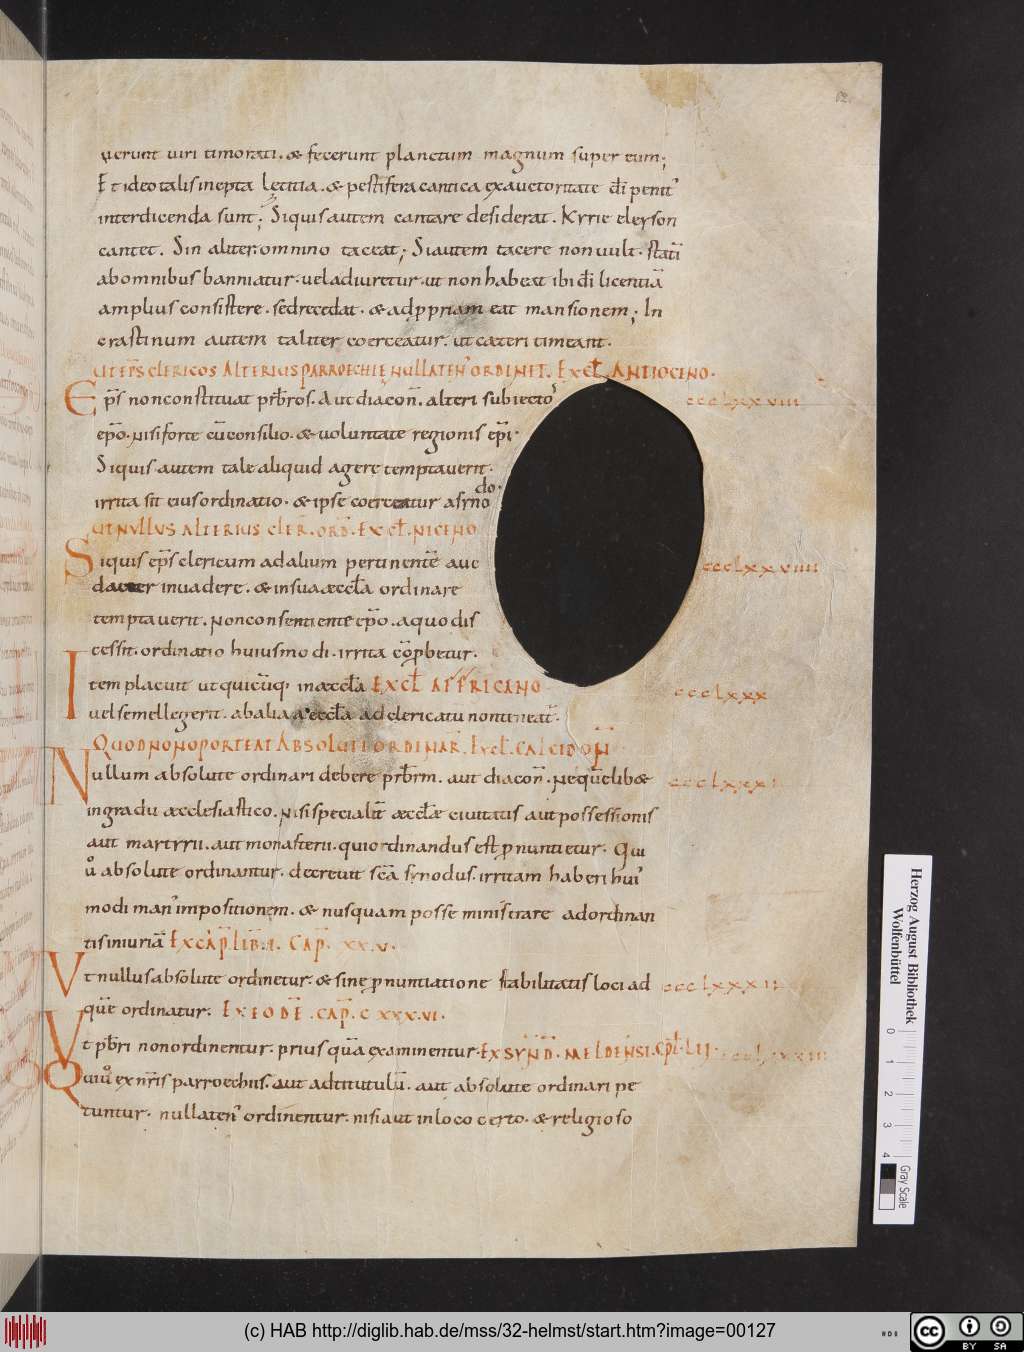 62.
verunt uiri timorati. & fecerunt planctum magnum super eum;
Et ideo talis inepta letitia. & pestifera cantica ex auctoritate d̄i penit᾿
interdicenda sunt; Si quis autem cantare desiderat. Kyrie eleyson
cantet. Sin aliter. omnino taceat; Si autem tacere non uult. statī
ab omnibus banniatur. uel adiuretur. ut non habeat ibi d̄i licentiā
amplius consistere. sed recedat. & ad ppriam eat mansionem; In
crastinum autem taliter coerceatur. ut cæteri timeant.
UT EP̄S CLERICOS ALTERIUS PARROECHIĘ NULLATEN᾿ ORDINET. EX CŁ ANTIOCENO.
Ep̄s non constituat prb̄ros. Aut diacon̄. alteri subiecto᾿
cccLxxviii
ep̄o. Nisi forte cū consilio. & uoluntate regionis ep̄i.
Si quis autem tale aliquid agere temptauerit.
irrita sit eius ordinatio. & ipse coerceatur a syno
do.
UT NULLUS ALTERIUS CLER̄. ORD̄. EX CŁ. NICENO
Si quis ep̄s clericum ad alium pertinentē auc
cccLxxviiii
dacter inuadere. & in sua æccłia ordinare
temptauerit. Non consentiente ep̄o. a quo dis
cessit. ordinatio huiusmodi. irrita cōpbetur.
Item placuit ut quicūq; in æccła EX CŁ AFFRICANO
cccLxxx
uel semel legerit. ab alia æccła ad clericatū non teneat᾿.
QUOD NON OPORTEAT ABSOLUTI ORDINAR̄. EX CŁ. CALCIDOÑ
Nullum absolute ordinari debere prb̄rm. aut diacon̄. Neq; quēlib&
cccLxxxi
in gradu æcclesiastico. Nisi specialit̄ æccłæ ciuitatis aut possessionis
aut martyrii. aut monasterii. qui ordinandus est pnuntietur. Qui
ů absolute ordinantur. decreuit sc̄a synodus. irritam haberi hui᾿
modi man᾿ impositionem. & nusquam posse ministrare ad ordinan
tis iniuriā EX CAP̄. LIB̄. I. CAP̄. XXV.
Ut nullus absolute ordinetur. & sine pnuntiatione stabilitatis loci ad
cccLxxxii
quē ordinatur. EX EODĒ. CAP̄. CXXXVI.
Ut pb̄ri non ordinentur. prius quā examinentur. EX SYNOD̄. MELDENSI. CPŁ. LII.
cccLxxxiii
Qui ů ex nr̄is parroechiis. aut ad titulū. aut absolute ordinari pe
tuntur. nullaten᾿ ordinentur. nisi aut in loco certo. & religioso
Herzog August Bibliothek
Wolfenbüttel
0
1
2
3
4
Gray Scale
(c) HAB http://diglib.hab.de/mss/32-helmst/start.htm?image=00127
cc BY SA